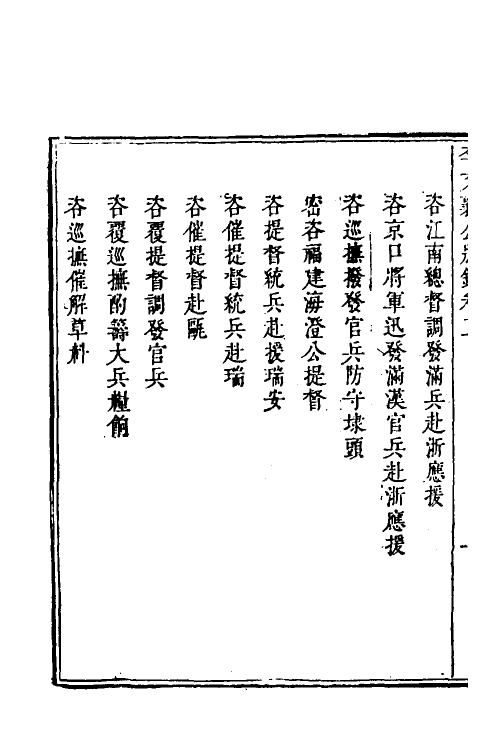 咨江南總督調發滿兵赴浙應援
咨京口將軍迅發滿漢官兵赴浙應援
咨巡撫撥發官兵防守埭頭
密咨福建海澄公提督
咨提督統兵赴援瑞安
咨催提督統兵赴瑞
咨催提督赴甌
咨覆提督調發官兵
咨覆巡撫酌籌大兵糧餉
咨巡撫催解草料